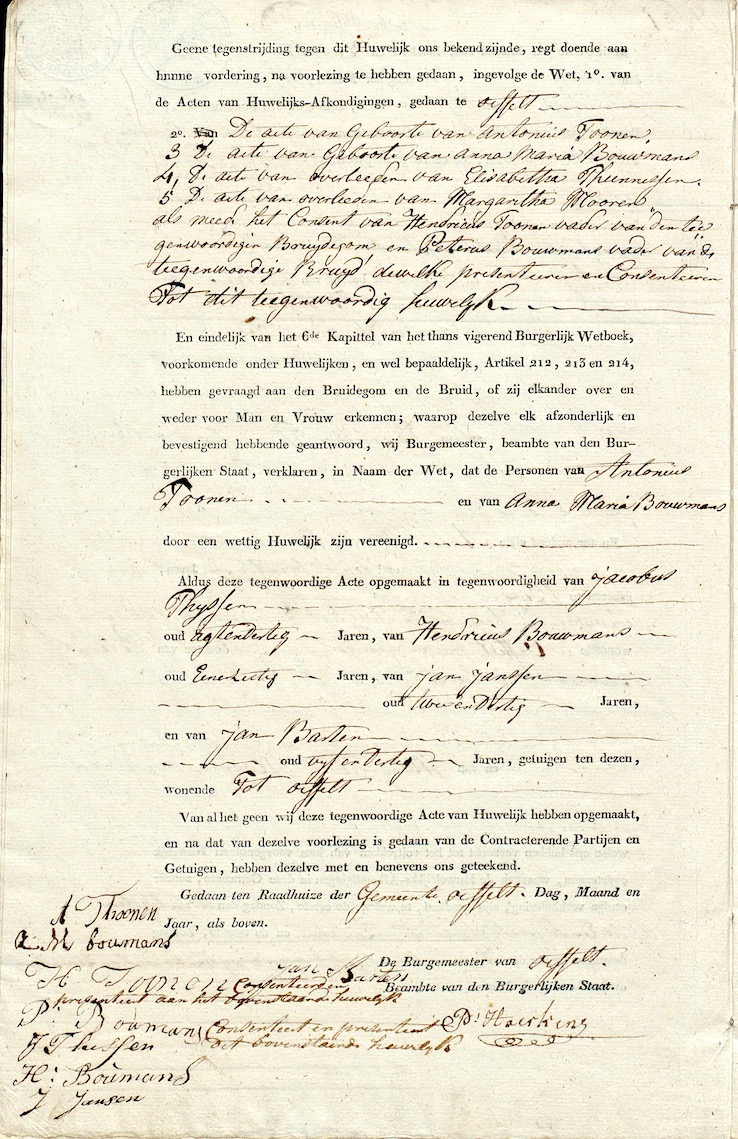 Geene tegenstrijding tegen dit Huwelijk ons bekend zijnde, regt doende aan
hunne vordering, na voorlezing te hebben gedaan, ingevolge de Wet, 1o. van
de Acten van Huwelijks-Afkondigingen, gedaan te oiffelt
2o. Van De acte van Geboorte van Antonius Toonen
3 De acte van Geboorte van Anna Maria Bouwmans
4, De acte van overleeden van Elisabetha Theunessen.
5 De acte van overleeden van Margaritha Mooren
als meede het Consent van Hendricus Toonen vader van den tee
genwoordigen Bruydegom en Peterus Bouwmans vader van de
teegenwoordige Bruyd, dewelke presenteeren en Consenteeren
Tot dit teegenwoordig huwelyk
En eindelijk van het 6de Kapittel van het thans vigerend Burgerlijk Wetboek,
voorkomende onder Huwelijken, en wel bepaaldelijk, Artikel 212, 213 en 214,
hebben gevraagd aan den Bruidegom en de Bruid, of zij elkander over en
weder voor Man en Vrouw erkennen; waarop dezelve elk afzonderlijk en
bevestigend hebbende geantwoord, wij Burgemeester, beambte van den Bur-
gerlijken Staat, verklaren, in Naam der Wet, dat de Personen van Antonius
Toonen en van Anna Maria Bouwmans
door een wettig Huwelijk zijn vereenigd.
Aldus deze tegenwoordige Acte opgemaakt in tegenwoordigheid van Jacobus
Thyssen
oud agtendertig Jaren, van Hendricus Bouwmans
oud Jaren, van Jan Janssen
oud twee en Dertig Jaren,
en van Jan Barten
oud vyf en dertig Jaren, getuigen ten dezen,
wonende Tot oiffelt
Van al het geen wij deze tegenwoordige Acte van Huwelijk hebben opgemaakt,
en na dat van dezelve voorlezing is gedaan van de Contracterende Partijen en
Getuigen, hebben dezelve met en benevens ons geteekend.
Gedaan ten Raadhuize der Gemeente oiffelt. Dag, Maand en
Jaar, als boven.
A Thoonen
M boumans
De Burgemeester van oiffelt.
Beambte van den Burgerlijken Staat.
Jan Barten
H Toonen Consenteerd en
presenteert aan het bovenstaande huwelyk
P: Boumans Consenteert en presenteert
dit bovenstaende huwelyk
J Thissen
H: Boumans
J Jansen